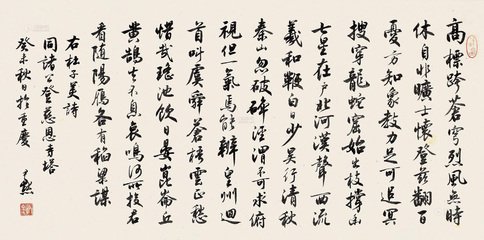 高標跨蒼穹烈風无時
休自非曠士懷登茲翻百
憂方知象教力足可追冥
搜穿龍蛇窟始出枝撐幽
七星在户北河漢聲西流
羲和鞭白日少昊行清秋
秦山忽破碎涇渭不可求俯
視但一氣焉能辨皇州迴
首叫虞舜蒼梧雲正愁
惜哉瑤池飲日晏崑崙丘
黄鵠去不息哀鳴何所投君
看隨陽雁各有稻粱謀
右杜子美詩
同諸公登慈恩寺塔
癸未秋日於重慶
尹默